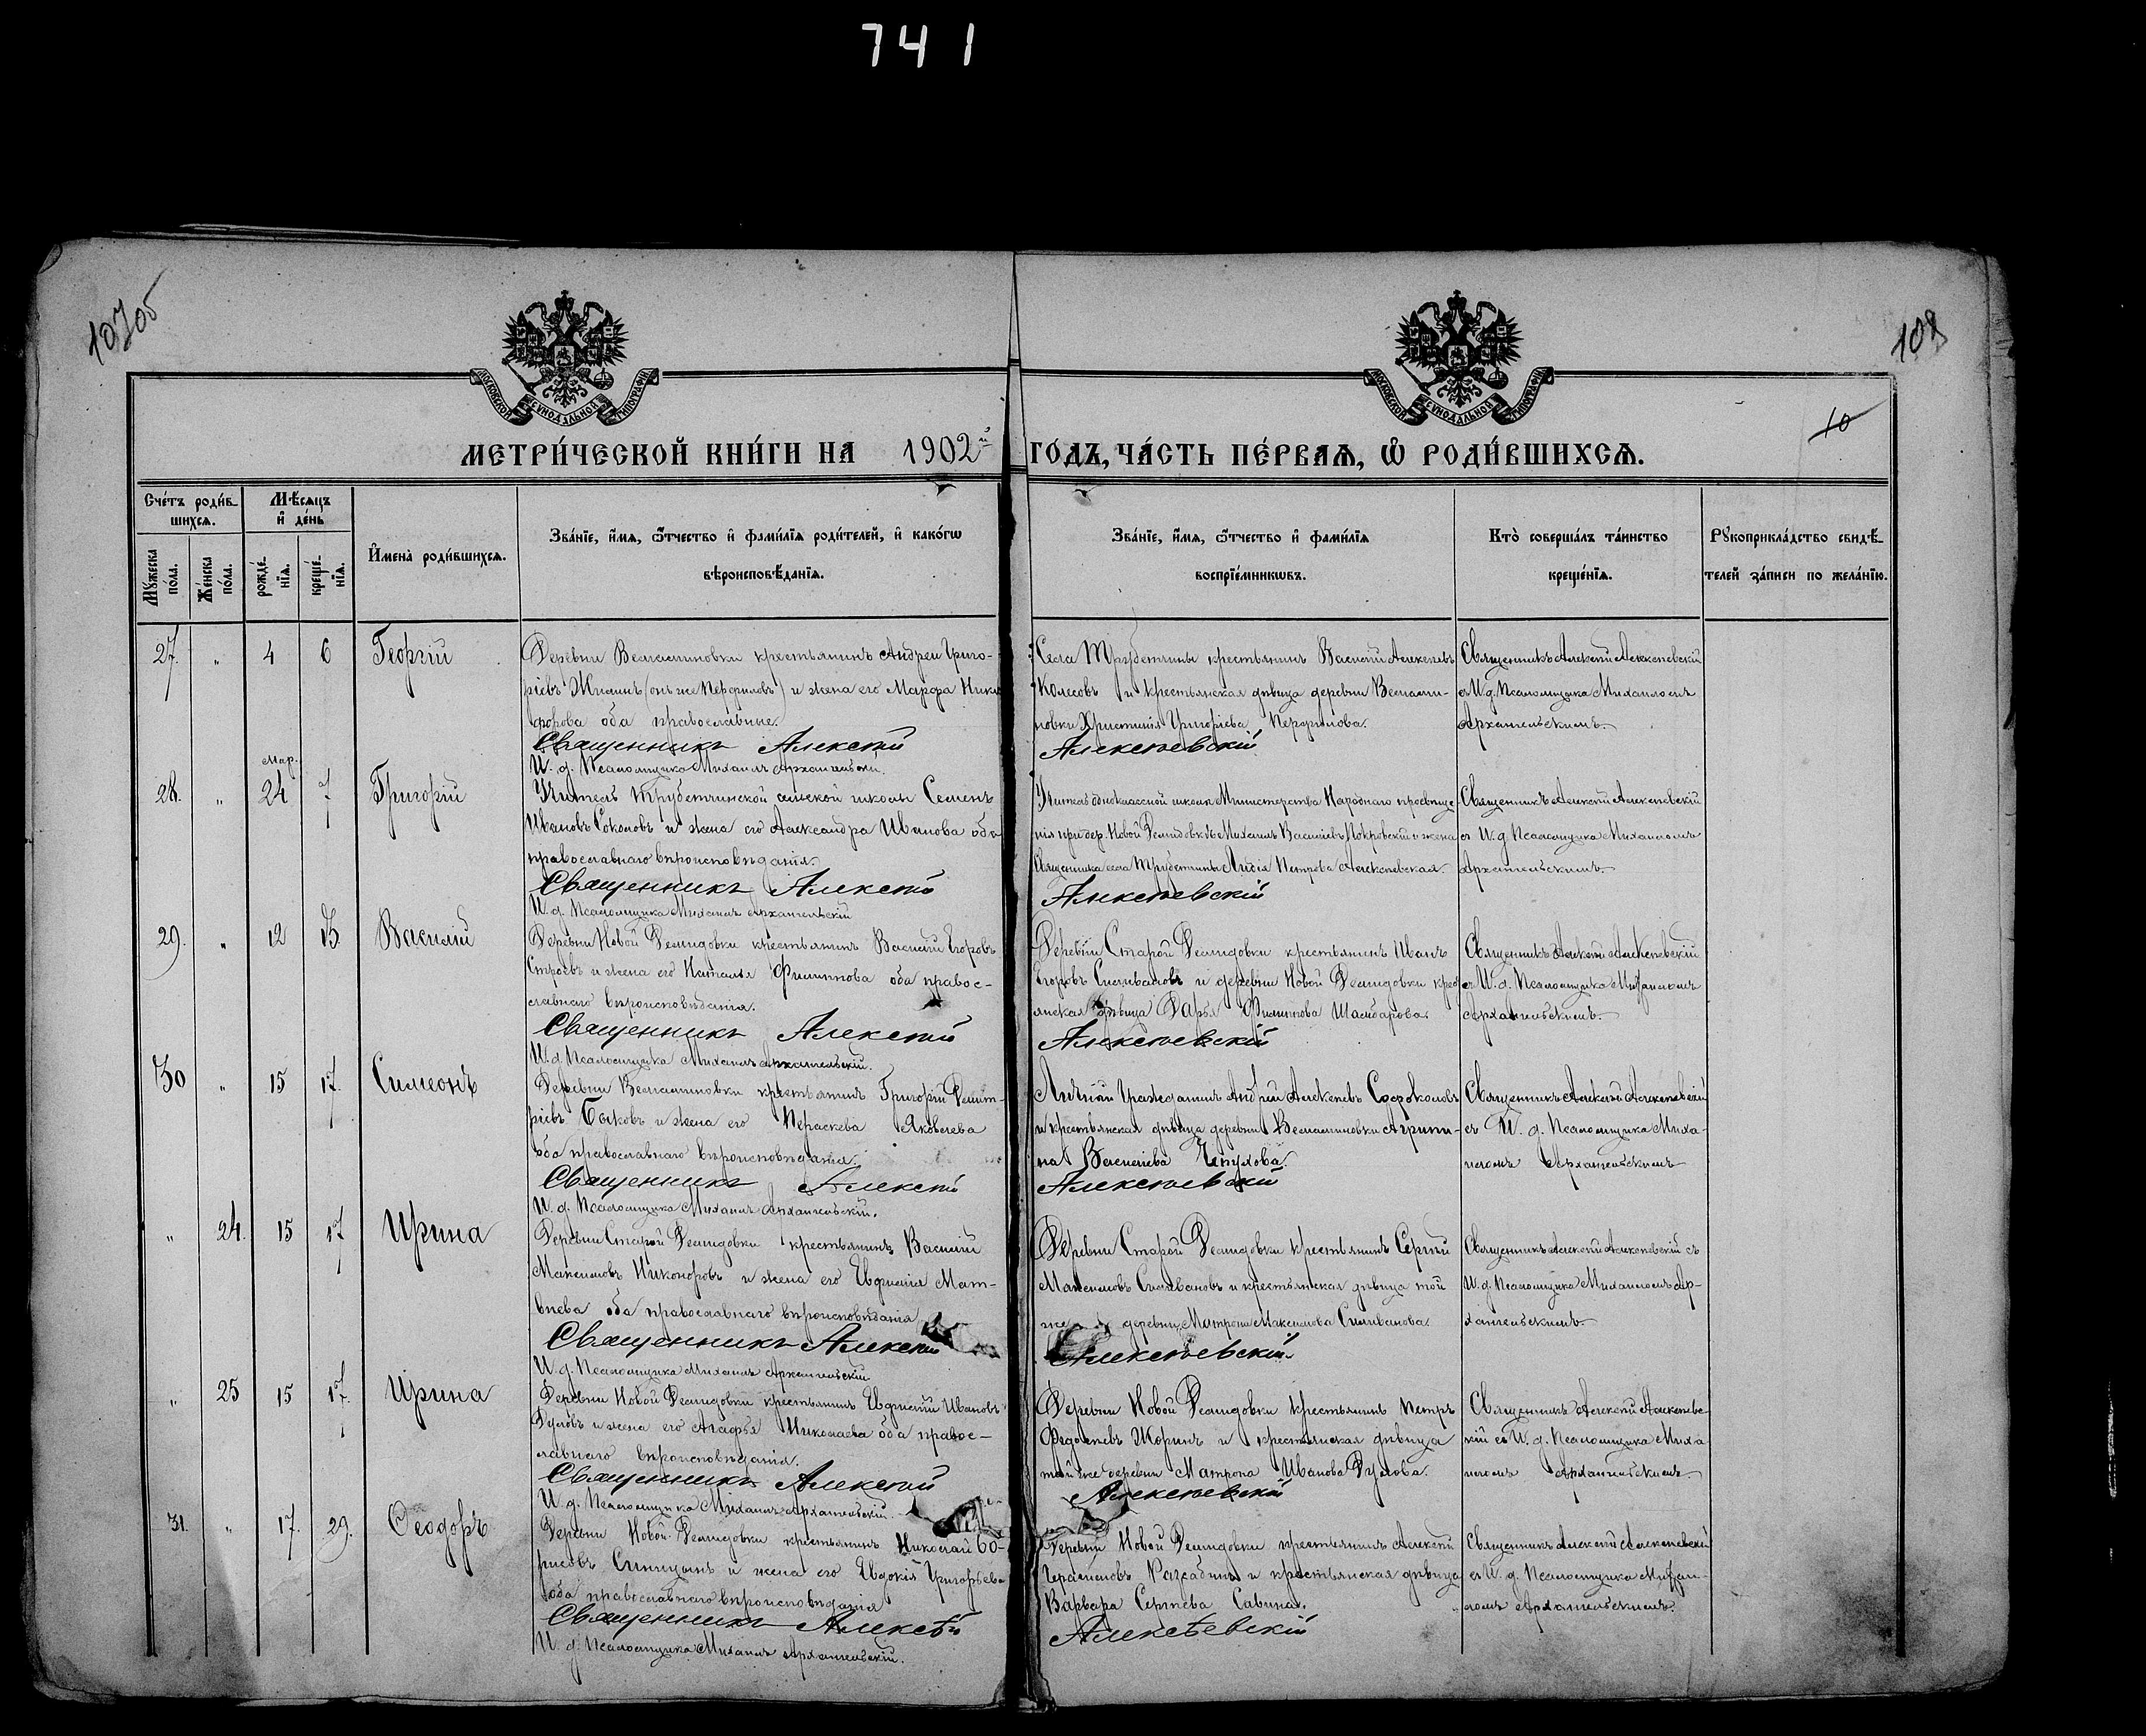 741
107об
108
МОСКОВСКОЙ СѴНОДАЛЬНОЙ ТИПОГРАФІИ
МОСКОВСКОЙ СѴНОДАЛЬНОЙ ТИПОГРАФІИ
10
МЕТРИ́ЧЕСКОЙ КНИ́ГИ НА 1902й ГОДЪ, ЧА́СТЬ ПЕ́РВАѦ, Ѡ҆ РОДИ́ВШИХСѦ.
Сче́тъ роди́в-
шихсѧ.
Мѣ́сѧцъ
и҆ де́нь
Мꙋ́жеска
по́ла.
Же́нска
по́ла.
рожде́-
нїѧ.
креще́-
нїѧ.
И҆мена̀ роди́вшихсѧ.
Зва́нїе, и҆́мѧ, ѻ҆́тчество и҆ фами́лїѧ роди́телей, и҆ како́гѡ
вѣроисповѣ́данїѧ.
Зва́нїе, и҆́мѧ, ѻ҆́тчество и҆ фами́лїѧ
воспрїе́мникѡвъ.
Кто̀ соверша́лъ та́инство
креще́нїѧ.
Рꙋкоприкла́дство свидѣ́-
телей за́писи по жела́нїю.
27. " 4 6 Георгій
Деревни Вельяминовки крестьянинъ Андрей Григо-
рьевъ Жилинъ (онъ же Перфиловъ) и жена его Марфа Ники
форова оба православные.
Священникъ Алексѣй
И. д. Псаломщика Михаилъ Архангельскій.
Села Трубетчины крестьянинъ Василій Алексѣевъ
Колесовъ и крестьянская дѣвица деревни Вельями-
новки Христинія Григорьева Перфилова.
Алексѣевскій
Священникъ Алексѣй Алексѣевскій
съ И. д. Псаломщика Михаиломъ
Архангельскимъ.
28. " Мар. 24 7 Григорій
Учитель Трубетчинской сельской школы Семенъ
Ивановъ Соколовъ и жена его Александра Иванова оба
православнаго вѣроисповѣданія.
Священникъ Алексѣй
И. д. Псаломщика Михаилъ Архангельскій
Учитель одноклассной школы Министерства Народнаго просвѣще
нія при дер. Новой Демидовкѣ Михаилъ Васильевъ Покровскій и жена
священника села Трубетчины Лидія Петрова Алексѣевская.
Алексѣевскій
Священникъ Алексѣй Алексѣевскій
съ И. д. Псаломщика Михаиломъ
Архангельскимъ.
29. " 12 13 Василій
Деревни Новой Демидовки крестьянинъ Василій Егоровъ
Строевъ и жена его Наталія Филиппова оба правос-
славнаго вѣроисповѣданія.
Священникъ Алексѣй
И. д. Псаломщика Михаилъ Архангельскій.
Деревни Старой Демидовки крестьянинъ Иванъ
Егоровъ Селивановъ и деревни Новой Демидовки крес
янская дѣвица Дарья Филиппова
Алексѣевскій
Священникъ Алексѣй Алексѣевскій
съ И. д. Псаломщика Михаиломъ
Архангельскимъ.
30 " 15 17. Симеонъ
Деревни Вельяминовки крестьянинъ Григорій Дмит-
ріевъ Быковъ и жена его Пераскева Яковлева
оба православнаго вѣроисповѣданія.
Священникъ Алексѣй
И. д. Псаломщика Михаилъ Архангельскій.
Личный Гражданинъ Андрей Алексѣевъ
и крестьянская дѣвица деревни Вельяминовки Агрипи-
на Васильева
Алексѣевскій
Священникъ Алексѣй Алексѣевскій
съ И. д. Псаломщика Миха-
иломъ Архангельскимъ
" 24. 15 17 Ирина
Деревни Старой Демидовки крестьянинъ Василій
Максимовъ Никоноровъ и жена его Евфимія Мат-
вѣева оба православнаго вѣроисповѣданія
Священникъ Алексѣй
И. д. Псаломщика Михаилъ Архангельскій
Деревни Старой Демидовки крестьянинъ Сергѣй
Максимовъ Селивановъ и крестьянская дѣвица той
же деревни Матрона Максимова Селиванова.
Алексѣевскій
Священникъ Алексѣй Алексѣевскій съ
И. д. Псаломщика Михаиломъ Ар-
хангельскимъ.
" 25 15 17. Ирина
Деревни Новой Демидовки крестьянинъ Евфимій Ивановъ
Дуловъ и жена его Агафья Николаева оба правос-
лавнаго вѣроисповѣданія.
Священникъ Алексѣй
И. д. Псаломщика Михаилъ Архангельскій.
Деревни Новой Демидовки крестьянинъ Петръ
Федотьевъ Жоринъ и крестьянская дѣвица
той же деревни Матрона Иванова Дулова.
Алексѣевскій
Священникъ Алексѣй Алексѣевс
кій съ И. д. Псаломщика Миха
иломъ Архангельскимъ.
31. " 17. 29. Ѳеодоръ
Деревни Новой Демидовки крестьянинъ Николай Бо-
рисовъ Синицынъ и жена его Евдокія Григорьева
оба православнаго вѣроисповѣданія
Священникъ Алексѣй
И. д. Псаломщика Михаилъ Архангельскій.
Деревни Новой Демидовки крестьянинъ Алексѣй
Герасимовъ и крестьянская дѣвица
Варвара Сергѣева Савина.
Алексѣевскій
Священникъ Алексѣй Алексѣевскій
съ И. д. Псаломщика Михаи-
ломъ Архангельскимъ.